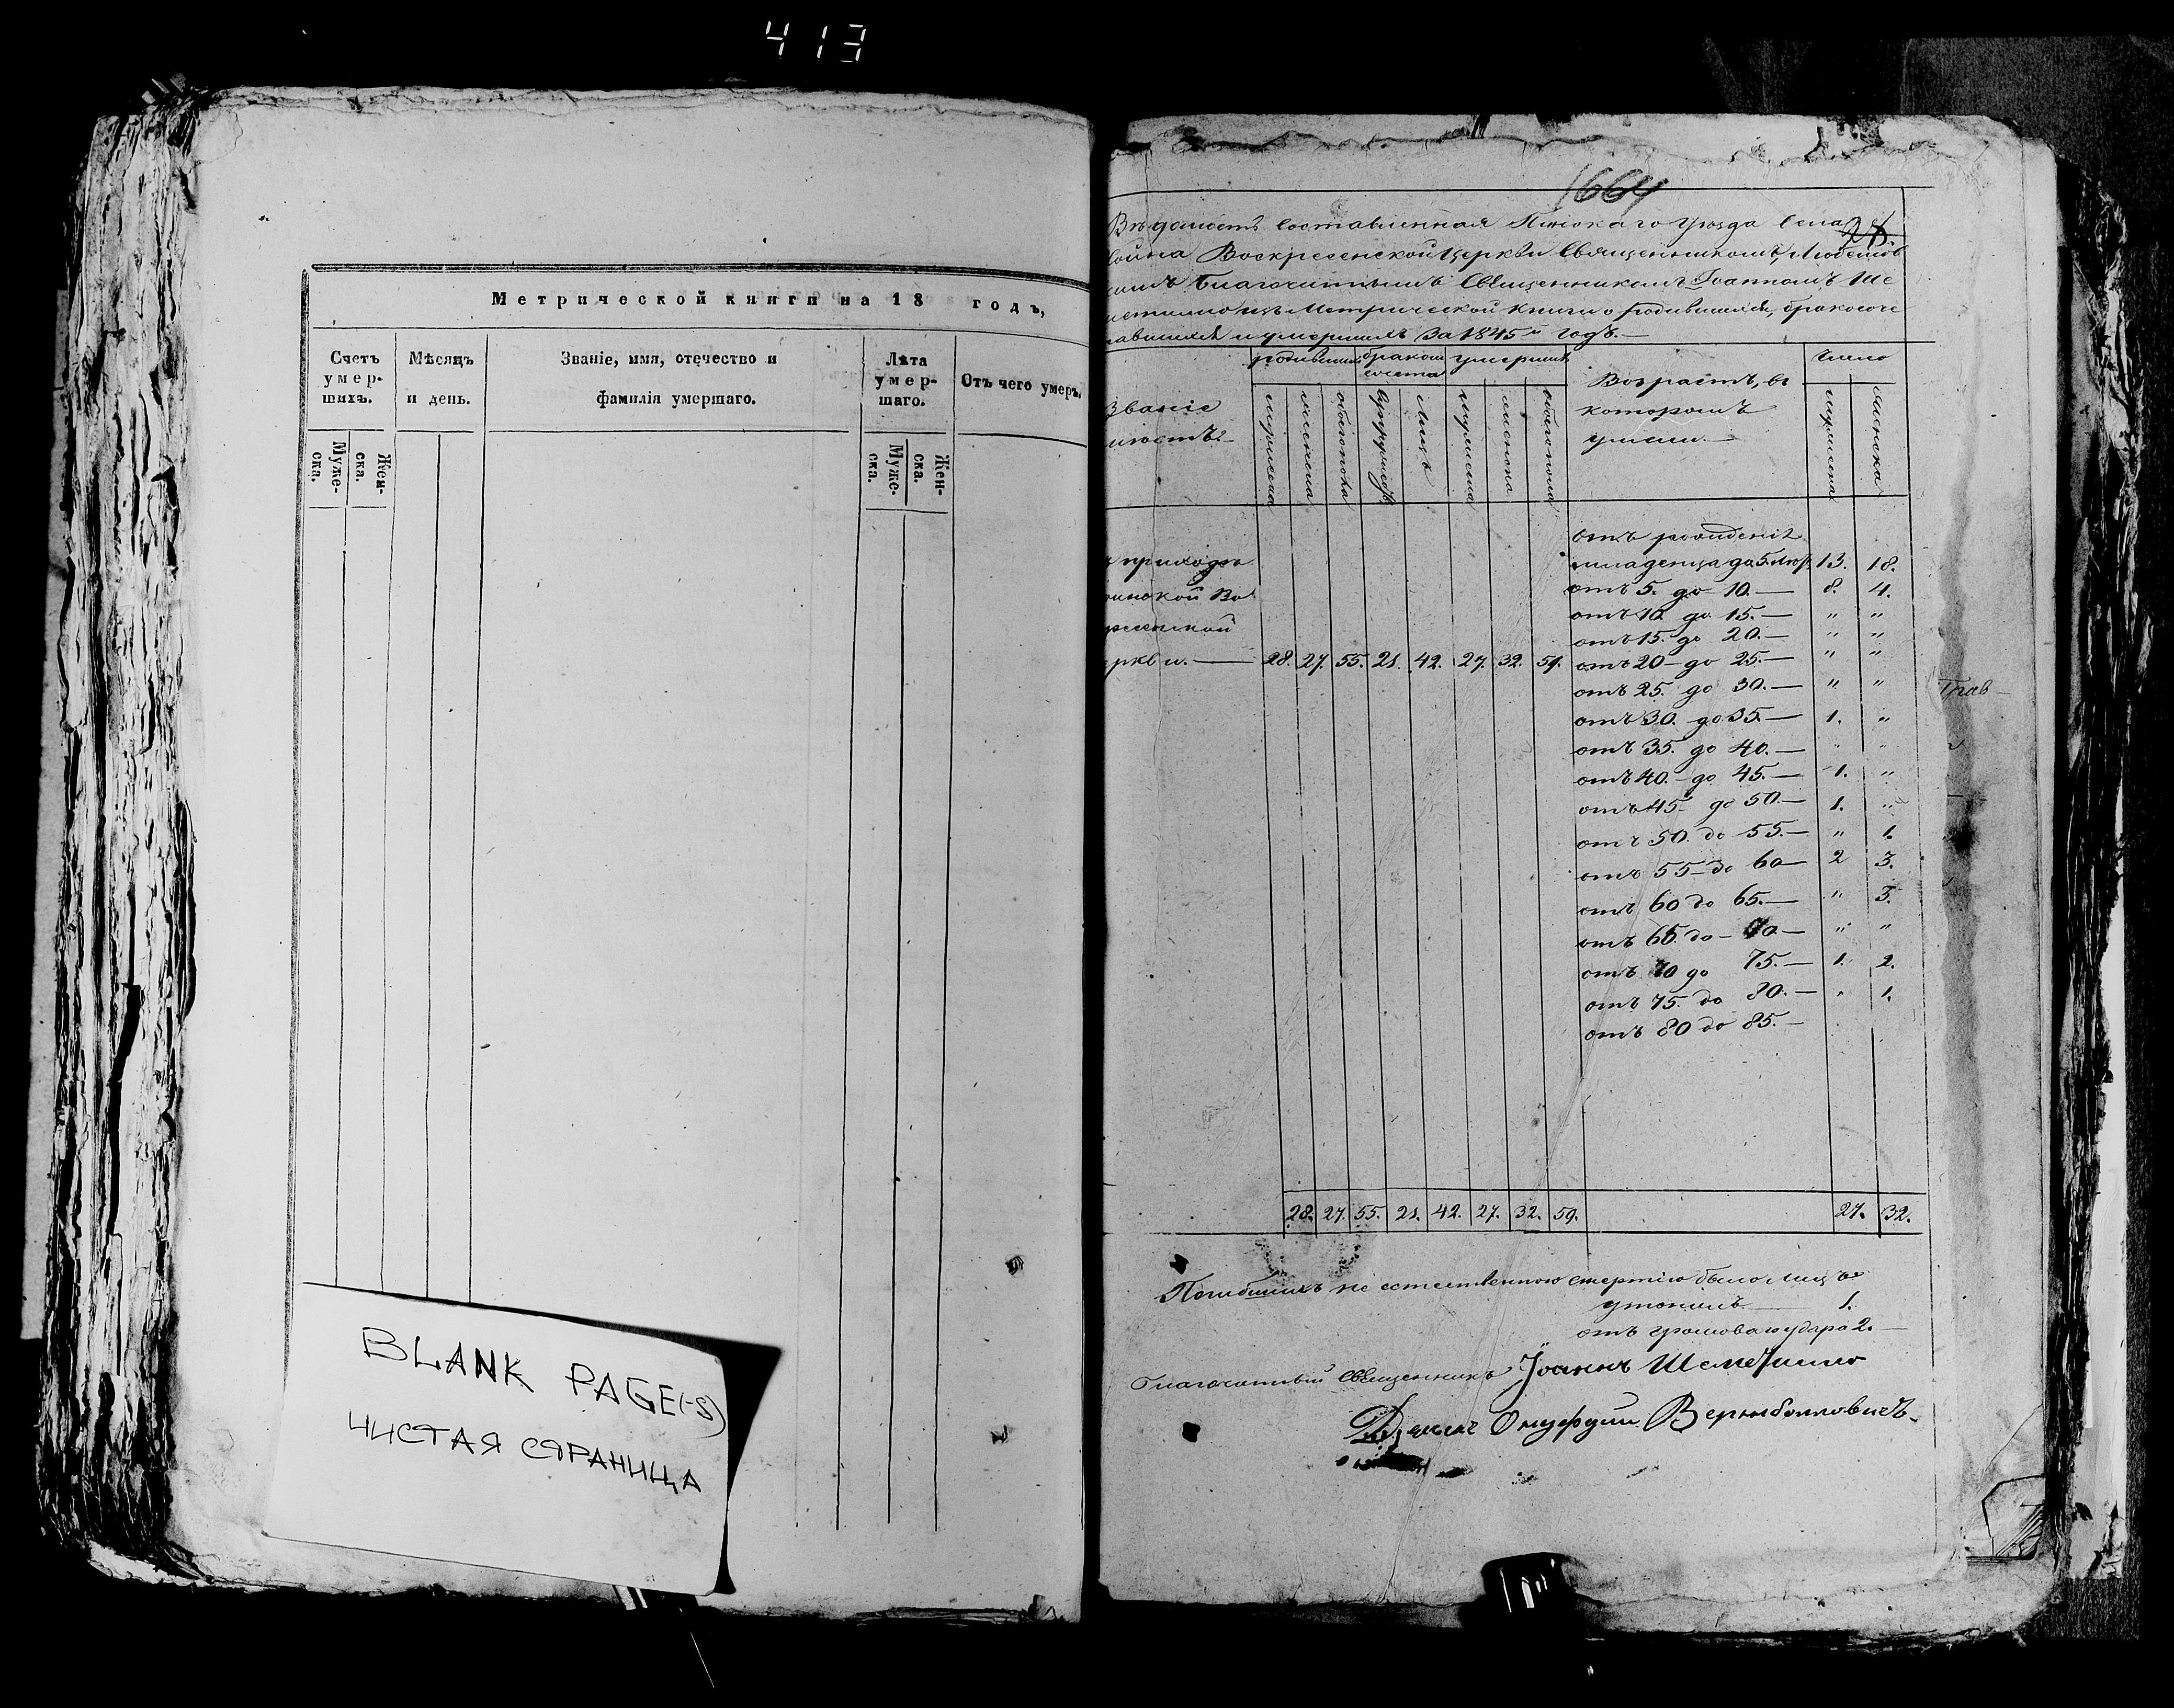 413
Метрической книги на 18 годъ,
Счетъ умер- шихъ.
Мѣсяцъ и день.
Званіе, имя, отечество и фамилія умершаго.
Лѣта умер- шаго.
Отъ чего умеръ.
Муже- ска.
Жен- ска.
Муже- ска.
Жен- ска.
BLANK PAGE(-S)
ЧИСТАЯ СТРАНИЦА
1664
28.
Вѣдомость составленная Пинскаго Уѣзда Села
Воскресенской Церкви Священникомъ, Любешов
Благочиннымъ Священникомъ Іоанномъ Ше
изъ Метрической книги о родившихся, бракосоче
тавшихся и умершихъ за 1845й годъ.—
родившихся
бракосочета
умершихъ
Возрастъ, въ
которомъ
умели.—
число
Званіе
мужеска
женска
обоего пола
супружествъ
лицъ
мужеска
женска
обоего пола
мужеска
женска
приходѣ
ской Во
кресенской
еркви.— 28. 27. 55. 21. 42. 27. 32. 59.
отъ рожденія
младенца до 5. лѣтъ 13. 18.
отъ 5. до 10.— 8. 4.
отъ 10. до 15.— " "
отъ 15. до 20.— " "
отъ 20— до 25.— " "
отъ 25. до 30.— " "
отъ 30. до 35.— 1. "
отъ 35. до 40.— " "
отъ 40.— до 45.— 1. "
отъ 45— до 50.— 1. "
отъ 50. до 55.— " 1.
отъ 55— до 60— 2 3.
отъ 60 до 65.— " 3.
отъ 65. до— 70.— " "
отъ 70 до 75.— 1. 2.
отъ 75. до 80.— " 1.
отъ 80 до 85.—
28. 27. 55. 21. 42. 27. 32. 59. 27. 32.
Погибшихъ не естественною смертію было лицъ
утонилъ 1.
отъ громоваго удара 2.—
Благочинный Священникъ Іоаннъ Шеметилло
Дьякъ Онуфрій Вержболовичъ.
Трав—